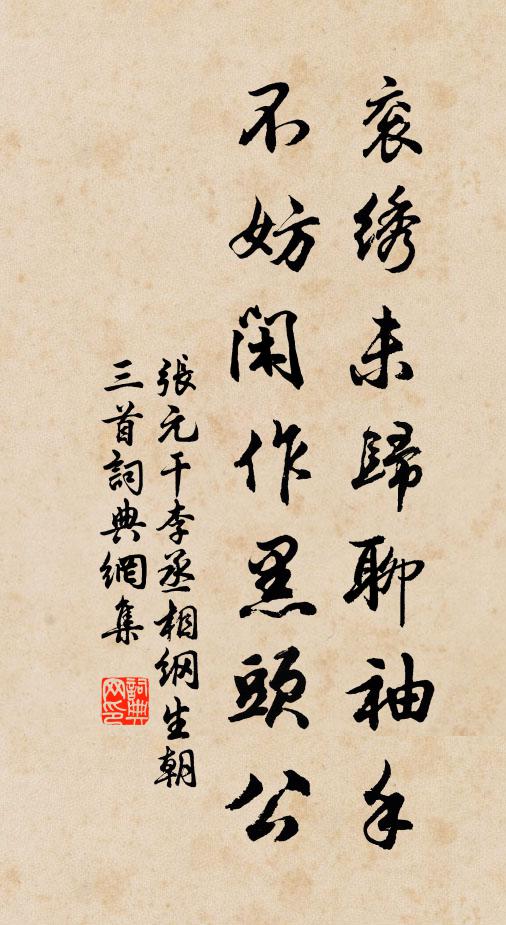 衮绣未歸聊袖手
不妨閑作黑頭公
張元干李丞相纲生朝
三首詞典網集
詞典網印